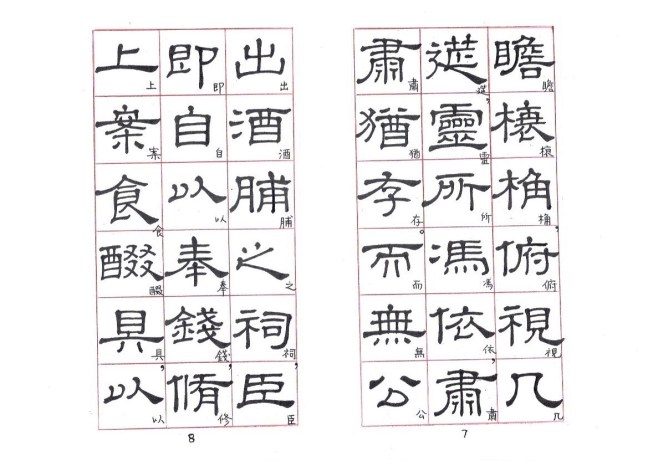 瞻榱桷俯視几
瞻榱桷,俯視几
筵靈所馮依肅
筵,靈所馮依,肅
肅猶存而無公
肅猶存。而無公
7
出酒脯之祠臣
出酒脯之祠,臣
即自以奉錢脩
即自以奉錢,修
上案食醊具以
上案食醊具,以
8